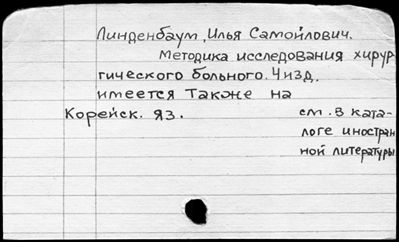 Линденбаум, Илья Самойлович.
Методика исследования хирур-
гического больного. 4 изд.
имеется также на
Корейск. яз.
см. в ката-
логе иностран
ной литературы